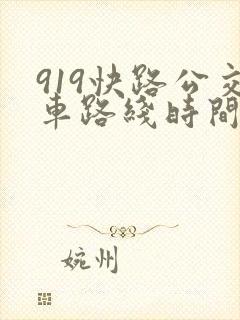 919快路公交
車路綫時間
婉州